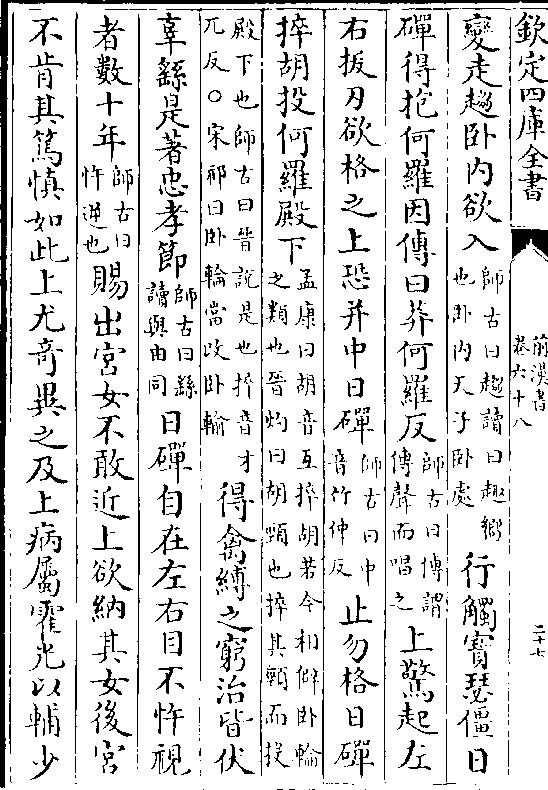 欽定四庫全書
前漢書
卷六十八
二十七
變走趨卧内欲入師古曰趨讀曰趣嚮也卧内天子卧處行觸寶瑟僵日
磾得抱何羅因傳曰莽何羅反師古曰傳謂傳聲而唱之上驚起左
右拔刃欲格之上恐并中日磾師古曰中音竹仲反止勿格日磾
捽胡投何羅殿下孟康曰胡音互捽胡若今相僻卧輪之類也晉灼曰胡頸也捽其頸而投
殿下也師古曰晉說是也捽音才兀反○宋祁曰卧輪當改卧輪得禽縛之窮治皆伏
辜繇是著忠孝節師古曰繇讀與由同日磾自在左右目不忤視
者數十年師古曰忤逆也賜出宫女不敢近上欲納其女後宫
不肯其篤慎如此上尤奇異之及上病屬霍光以輔少